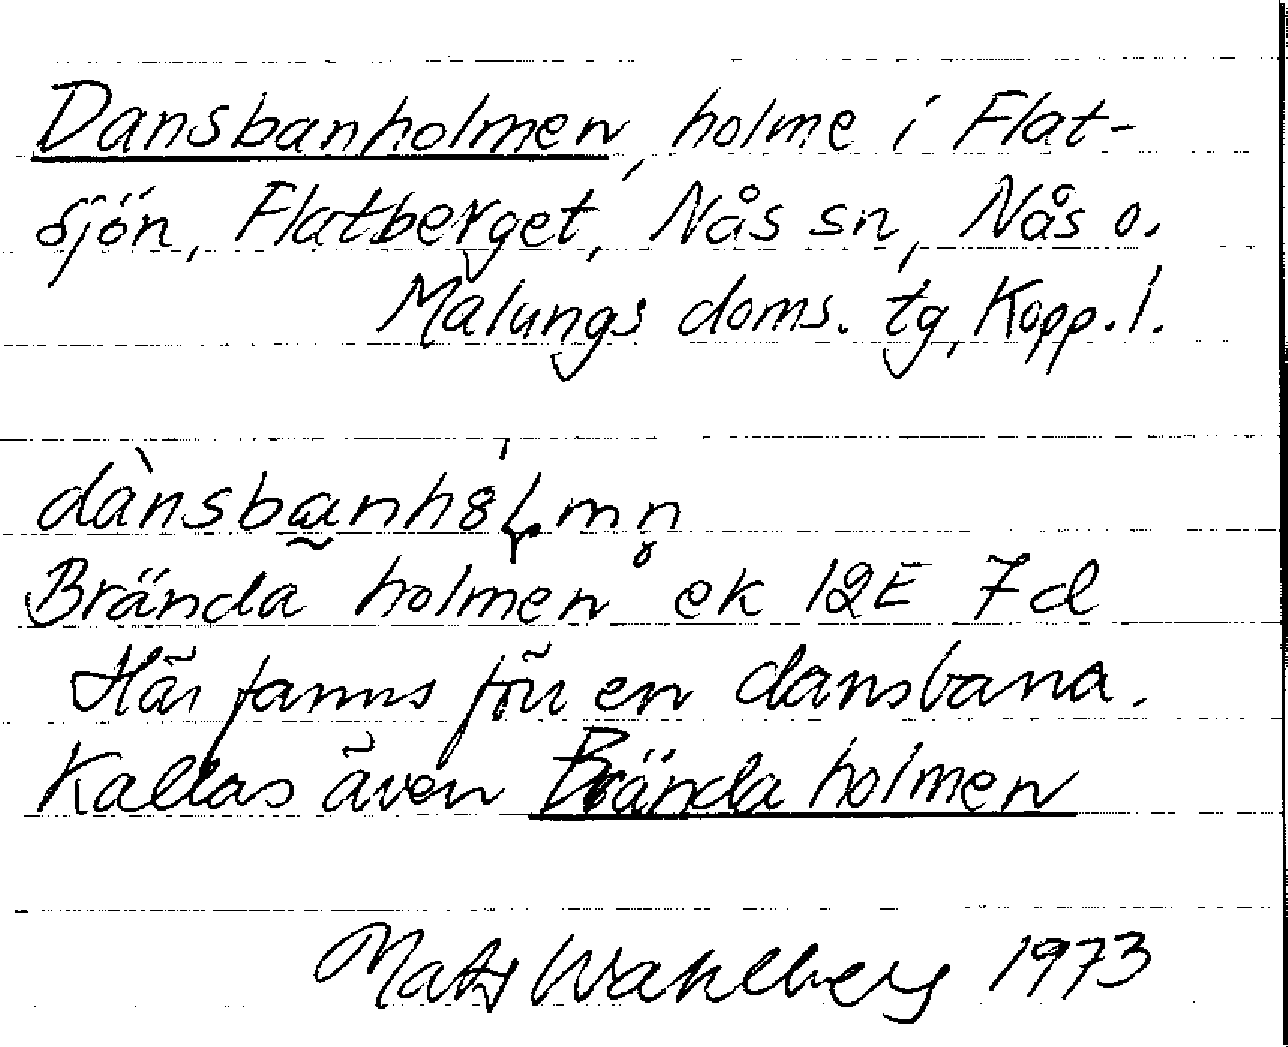 Dansbanholmen, holme i Flat-
sjön, Flatberget, Nås sn, Nås o.
Malungs doms. tg, Kopp. l.
Brända holmen ek 12E 7d
Här fanns förr en dansbana.
Kallas även Brända holmen
Mats Wahlberg 1973